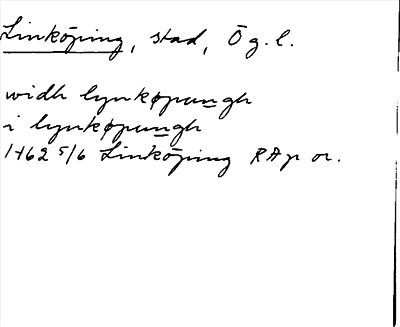 Linköping, stad, Ög.l.
widh lynkøpungh
i lynkøpungh
1462 5/6 Linköping RAp or.